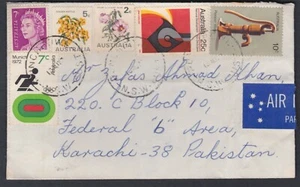 5c
AUSTRALIA
2c
AUSTRALIA
Australia
25c
10c
Munich
1972
7c
N.S.W.
Mr. Ahmad Khan,
220. C Block 10,
Federal "b" Area,
Karachi-38 Pakistan
AIR
PAR